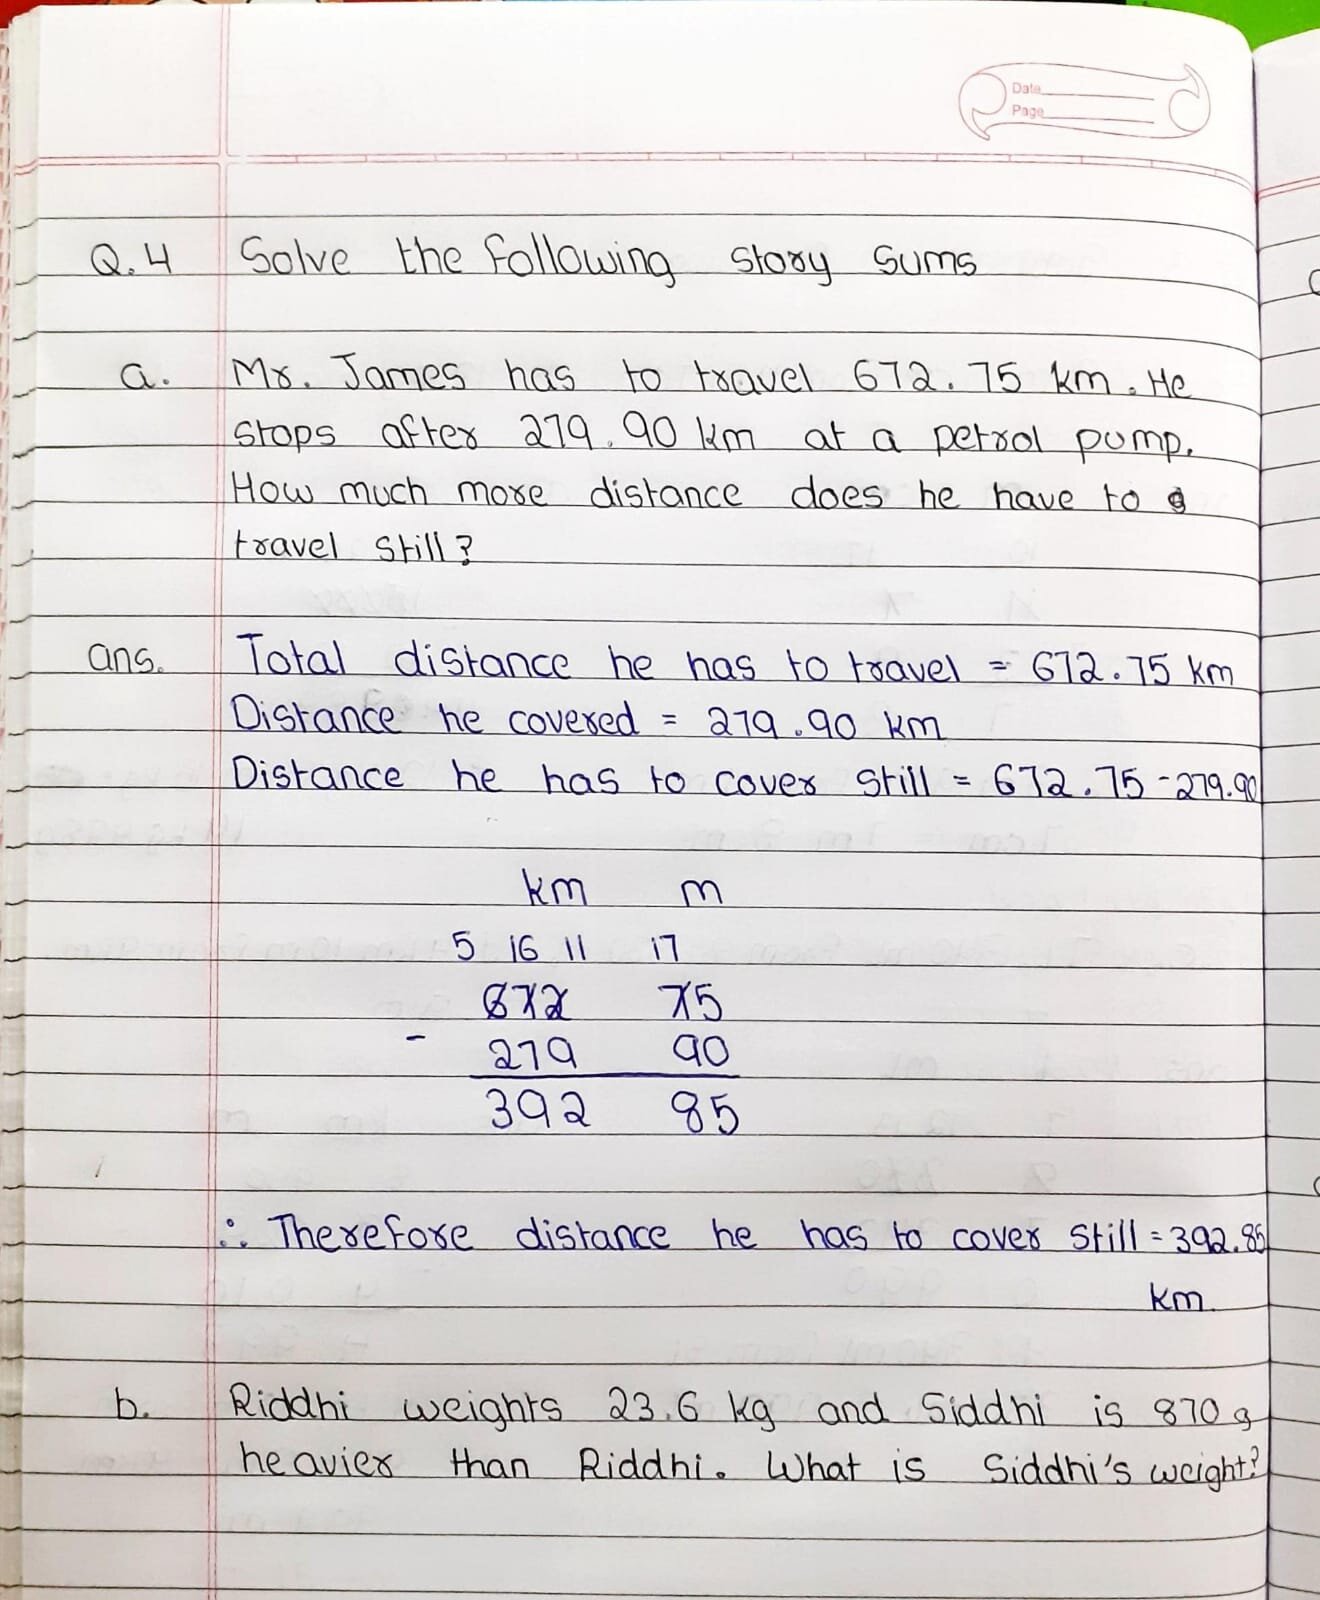 Date
Page
Q.4 Solve the following story sums
a. Mr. James has to travel 672.75 km. He
stops after 279.90 km at a petrol pump.
How much more distance does he have to
travel still?
ans. Total distance he has to travel = 672.75 km
Distance he covered = 279.90 km
Distance he has to cover still = 672.75 - 279.90
km m
5 16 11 17
672 75
- 279 90
392 85
∴ Therefore distance he has to cover still = 392.85
km
b. Riddhi weights 23.6 kg and Siddhi is 870 g
heavier than Riddhi. What is Siddhi's weight?